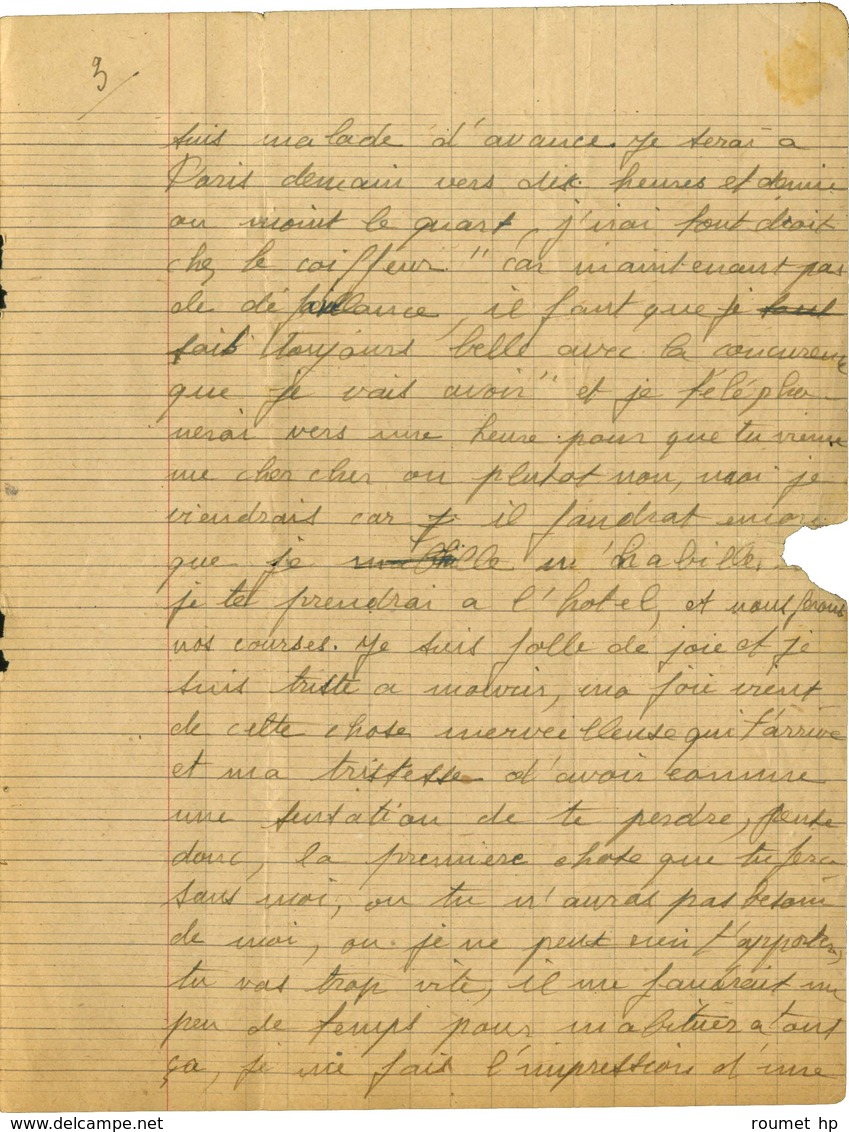 3
suis malade d'avance. je serai a
Paris demain vers dix heures et demie
ou moint le quart, j'irai tout droit
chez le coiffeur "car maintenant pas
de défaillance, il faut que je faut
sois toujours belle avec la concurence
que je vais avoir" et je télépho-
nerai vers une heure pour que tu vienne
me chercher ou plutot non, moi je
viendrais car il faudrat encore
que je m'habille,
je te prendrai a l'hotel, et nous ferons
nos courses. je suis folle de joie et je
suis triste a mourir, ma joie vient
de cette chose merveilleuse qui t'arrive
et ma tristesse d'avoir comme
une sensation de te perdre, pense
donc, la première chose que tu fera
sans moi, ou tu n'auras pas besoin
de moi, ou je ne peux rien t'apporter,
tu vas trop vite, il me faudrait un
peu de temps pour m'abituer a tout
ça, je me fais l'impression d'une
roumet hp